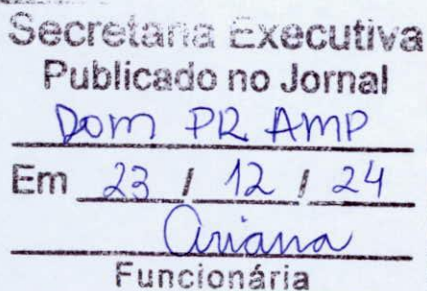 Secretaria Executiva
Publicado no Jornal
DOM PR AMP
Em 23 / 12 / 24
Ariana
Funcionária